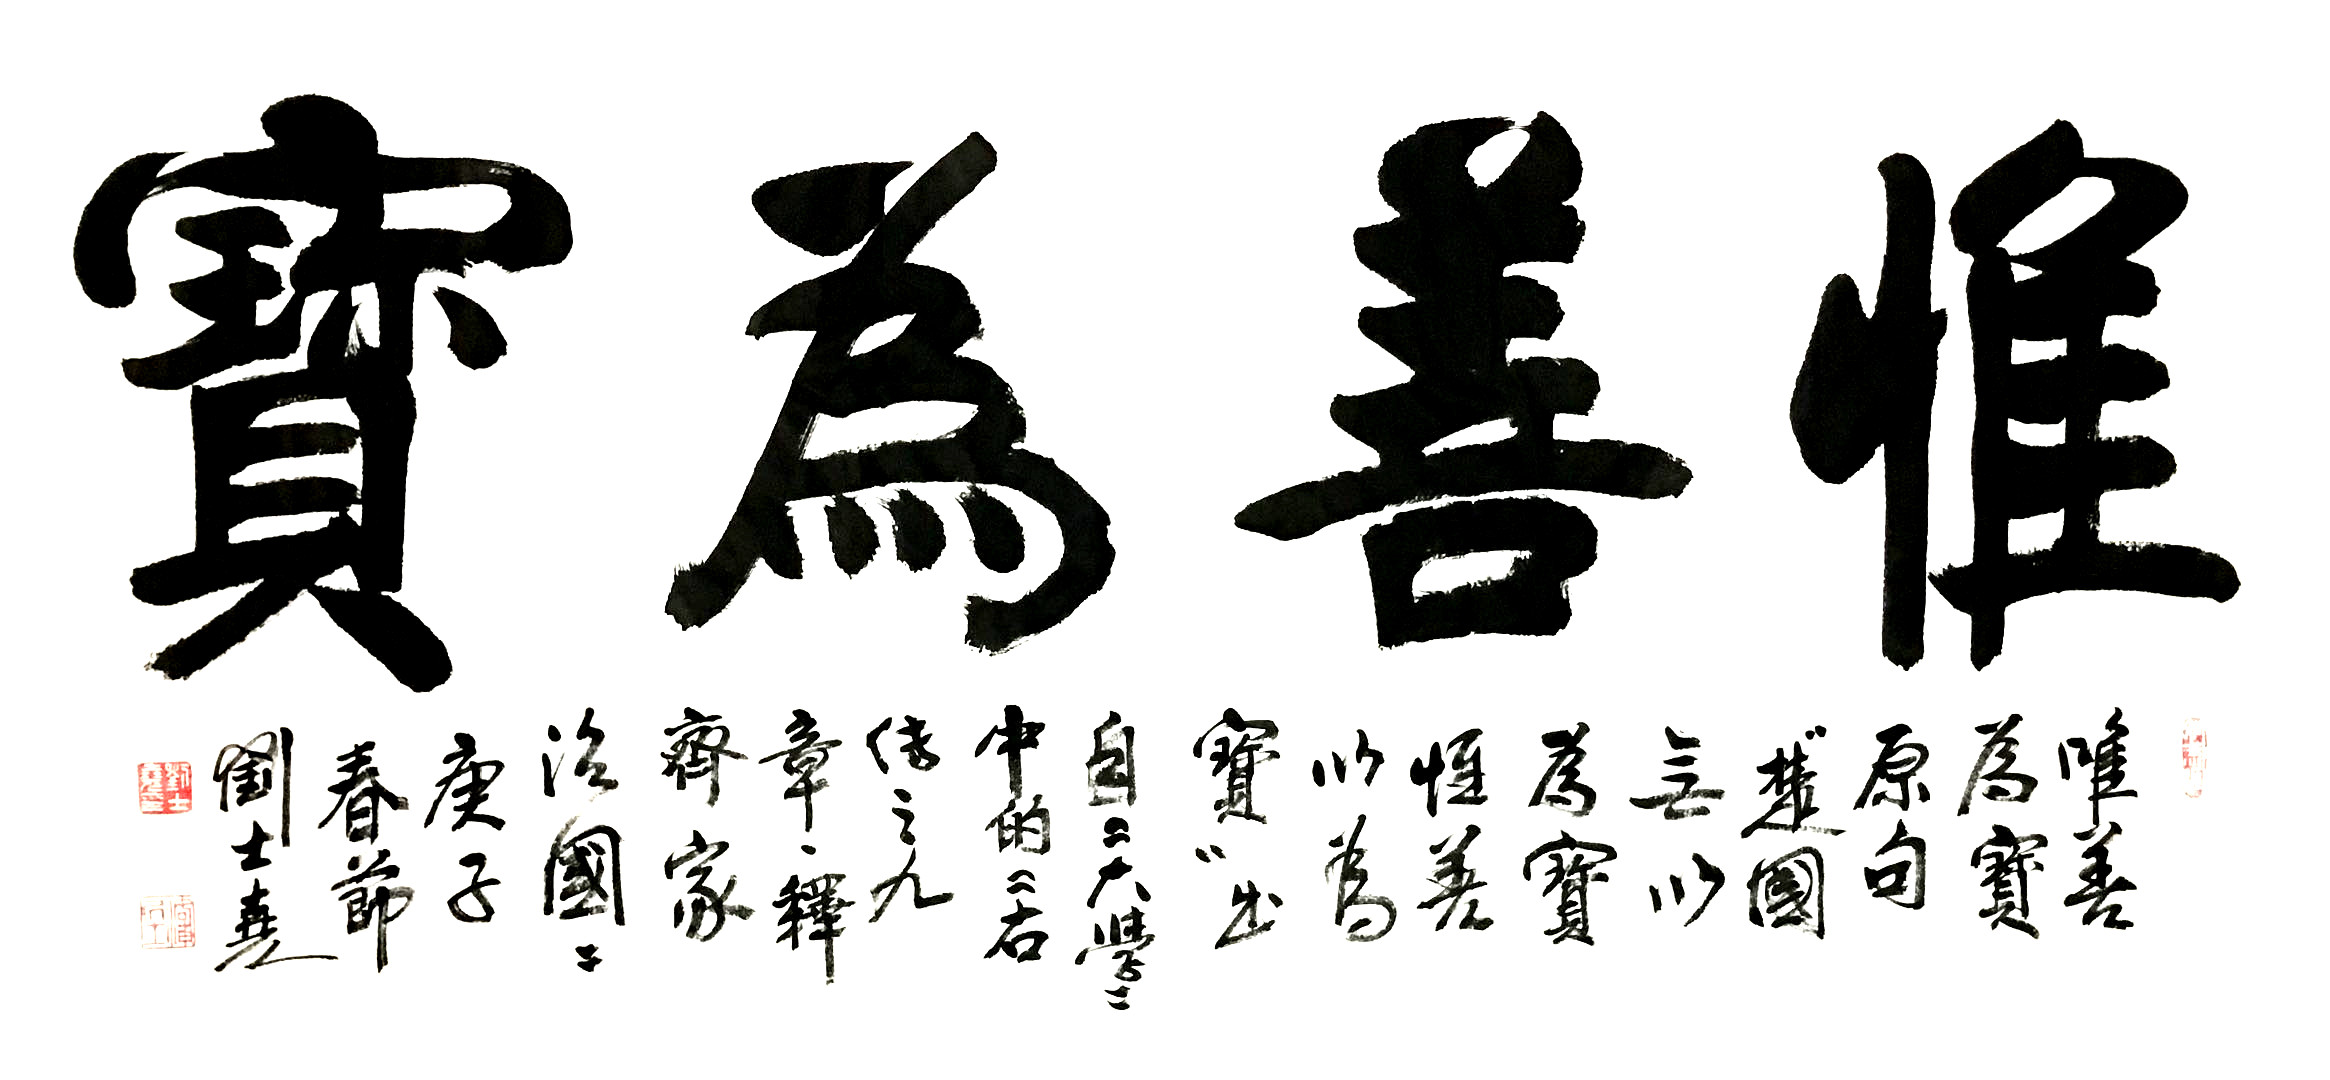 惟善為寶
唯善
為寶
原句
“楚國
無以
為寶
惟善
以為
寶”出
自“大學”
中的“右
傳之九
章、釋
齊家
治國”
庚子
春節
劉士堯